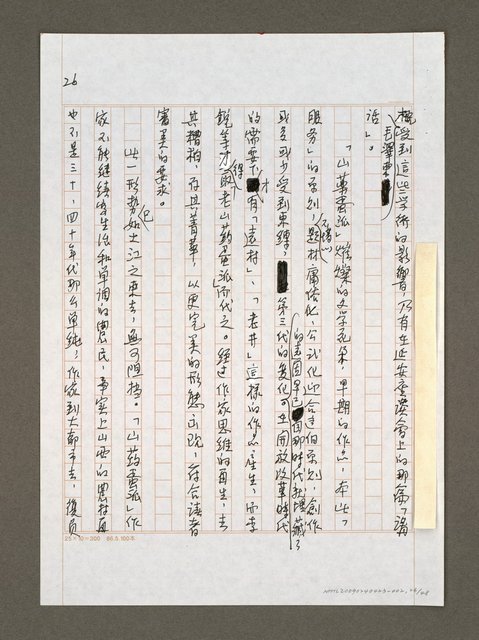 26
概受到這些學術的影響，乃有在延安座談會上的那篇「講
毛澤東
話」。
「山藥蛋派」燦爛的文學花朵，早期的作品，本此「
服務」的原則，題材庸俗化，公式化迎合這個原則，創作
或多或少受到束縛，第三代的變化，在開放改革時代
的需要下，才有「遠村」、「老井」這樣的作品產生，而李
銳等才得與老山藥蛋派「而代之。經過作家思維的再生，去
其糟粕，存其菁華，以更完美的形態出現，符合讀者
審美的要求。
此一形勢已如大江之東去，無可阻擋。「山藥蛋派」作
家不能繼續寫生活和單調的農民，事實上山西的農村再
也不是三十、四十年代那么單純，作家到大都市去，復員
25×10=300 86.5.100本
NMTL20090240023-002, 26/48